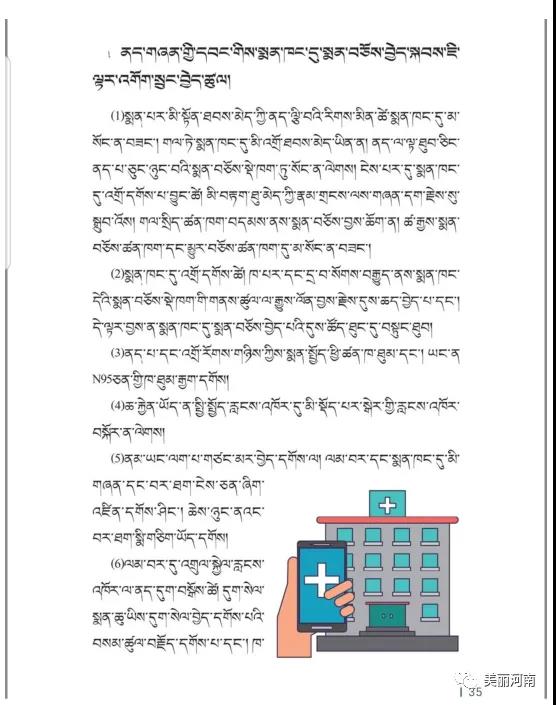 ༽ ནད་གཞན་གྱི་དབང་གིས་སྨན་ཁང་དུ་སྨན་བཅོས་བྱེད་སྐབས་ཇི་
ལྟར་འགོག་སྲུང་བྱེད་ཚུལ།
(1)སྨན་པར་མི་སྟོན་ཐབས་མེད་ཀྱི་ནད་ལྕི་བའི་རིགས་མིན་ཚེ་སྨན་ཁང་དུ་མ་
སོང་ན་བཟང་། གལ་ཏེ་སྨན་ཁང་དུ་མི་འགྲོ་ཐབས་མེད་ཡིན་ན། ནད་ལ་ལྟ་ཐུབ་ཅིང་
ནད་པ་ཅུང་ཉུང་བའི་སྨན་བཅོས་སྡེ་ཁག་ཏུ་སོང་ན་ལེགས། ངེས་པར་དུ་སྨན་ཁང་
དུ་འགྲོ་དགོས་པ་བྱུང་ཚེ། མི་བརྟག་ཐུ་མེད་ཀྱི་རྣམ་གྲངས་ལས་གཞན་དག་རྗེས་སུ་
སྒྲུབ་འོས། གལ་སྲིད་ཚན་ཁག་བདམས་ནས་སྨན་བཅོས་བྱས་ཆོག་ན། ཚ་རྒྱས་སྨན་
བཅོས་ཚན་ཁག་དང་མྱུར་བཅོས་ཚན་ཁག་ཏུ་མ་སོང་ན་བཟང་།
(2)སྨན་ཁང་དུ་འགྲོ་དགོས་ཚེ། ཁ་པར་དང་དྲ་བ་སོགས་བརྒྱུད་ནས་སྨན་ཁང་
དེའི་སྨན་བཅོས་སྡེ་ཁག་གི་གནས་ཚུལ་ལ་རྒྱུས་ལོན་བྱས་རྗེས་དུས་ཆད་བྱེད་པ་དང་།
དེ་ལྟར་བྱས་ན་སྨན་ཁང་དུ་སྨན་བཅོས་བྱེད་པའི་དུས་ཚོད་ཐུང་དུ་བསྟུང་ཐུབ།
(3)ནད་པ་དང་འགྲོ་རོགས་གཉིས་ཀྱིས་སྨན་སྤྱོད་ཕྱི་ཚན་ཁ་ཐུམ་དང་། ཡང་ན་
N95ཅན་གྱི་ཁ་ཐུམ་རྒྱག་དགོས།
(4)ཆ་རྐྱེན་ཡོད་ན་སྤྱི་སྤྱོད་རླངས་འཁོར་དུ་མི་སྡོད་པར་སྒེར་གྱི་རླངས་འཁོར་
བསྐོར་ན་ལེགས།
(5)ནམ་ཡང་ལག་པ་གཙང་མར་བྱེད་དགོས་ལ། ལམ་བར་དང་སྨན་ཁང་དུ་མི་
གཞན་དང་བར་ཐག་ངེས་ཅན་ཞིག་
འཛིན་དགོས་ཤིང་། ཆེས་ཉུང་ནའང་
བར་ཐག་སྨི་གཅིག་ཡོད་དགོས།
(6)ལམ་བར་དུ་འགྲུལ་སྐྱེལ་རླངས་
འཁོར་ལ་ནད་དུག་བསྒོས་ཚེ། དུག་སེལ་
སྨན་ཆུ་ཡིས་དུག་སེལ་བྱེད་དགོས་པའི་
བསམ་ཚུལ་བརྗོད་དགོས་པ་དང་། ཁ་
美丽河南
35